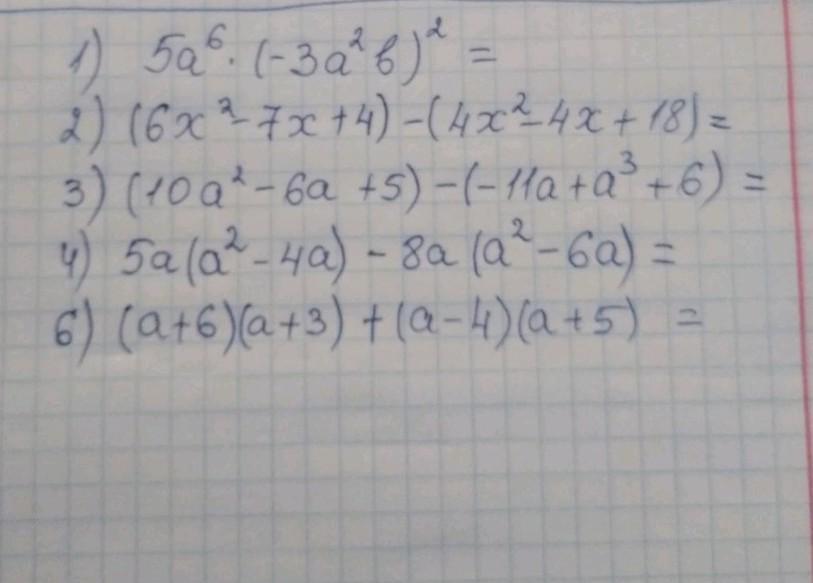 1) 5a⁶·(-3a²b)² =
2) (6x²-7x+4)-(4x²-4x+18)=
3) (10a²-6a+5)-(-11a+a³+6)=
4) 5a(a²-4a)-8a(a²-6a)=
6) (a+6)(a+3)+(a-4)(a+5) =